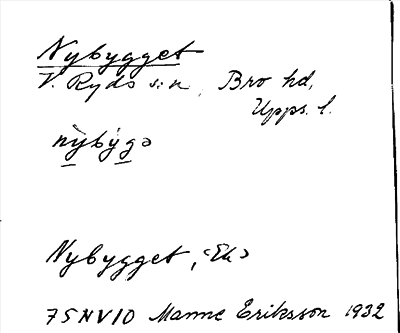 Nybygget
V. Ryds s:n, Bro hd,
Upps. l.
nỳbýgə
Nybygget, <Ek>
75NV10 Manne Eriksson 1932